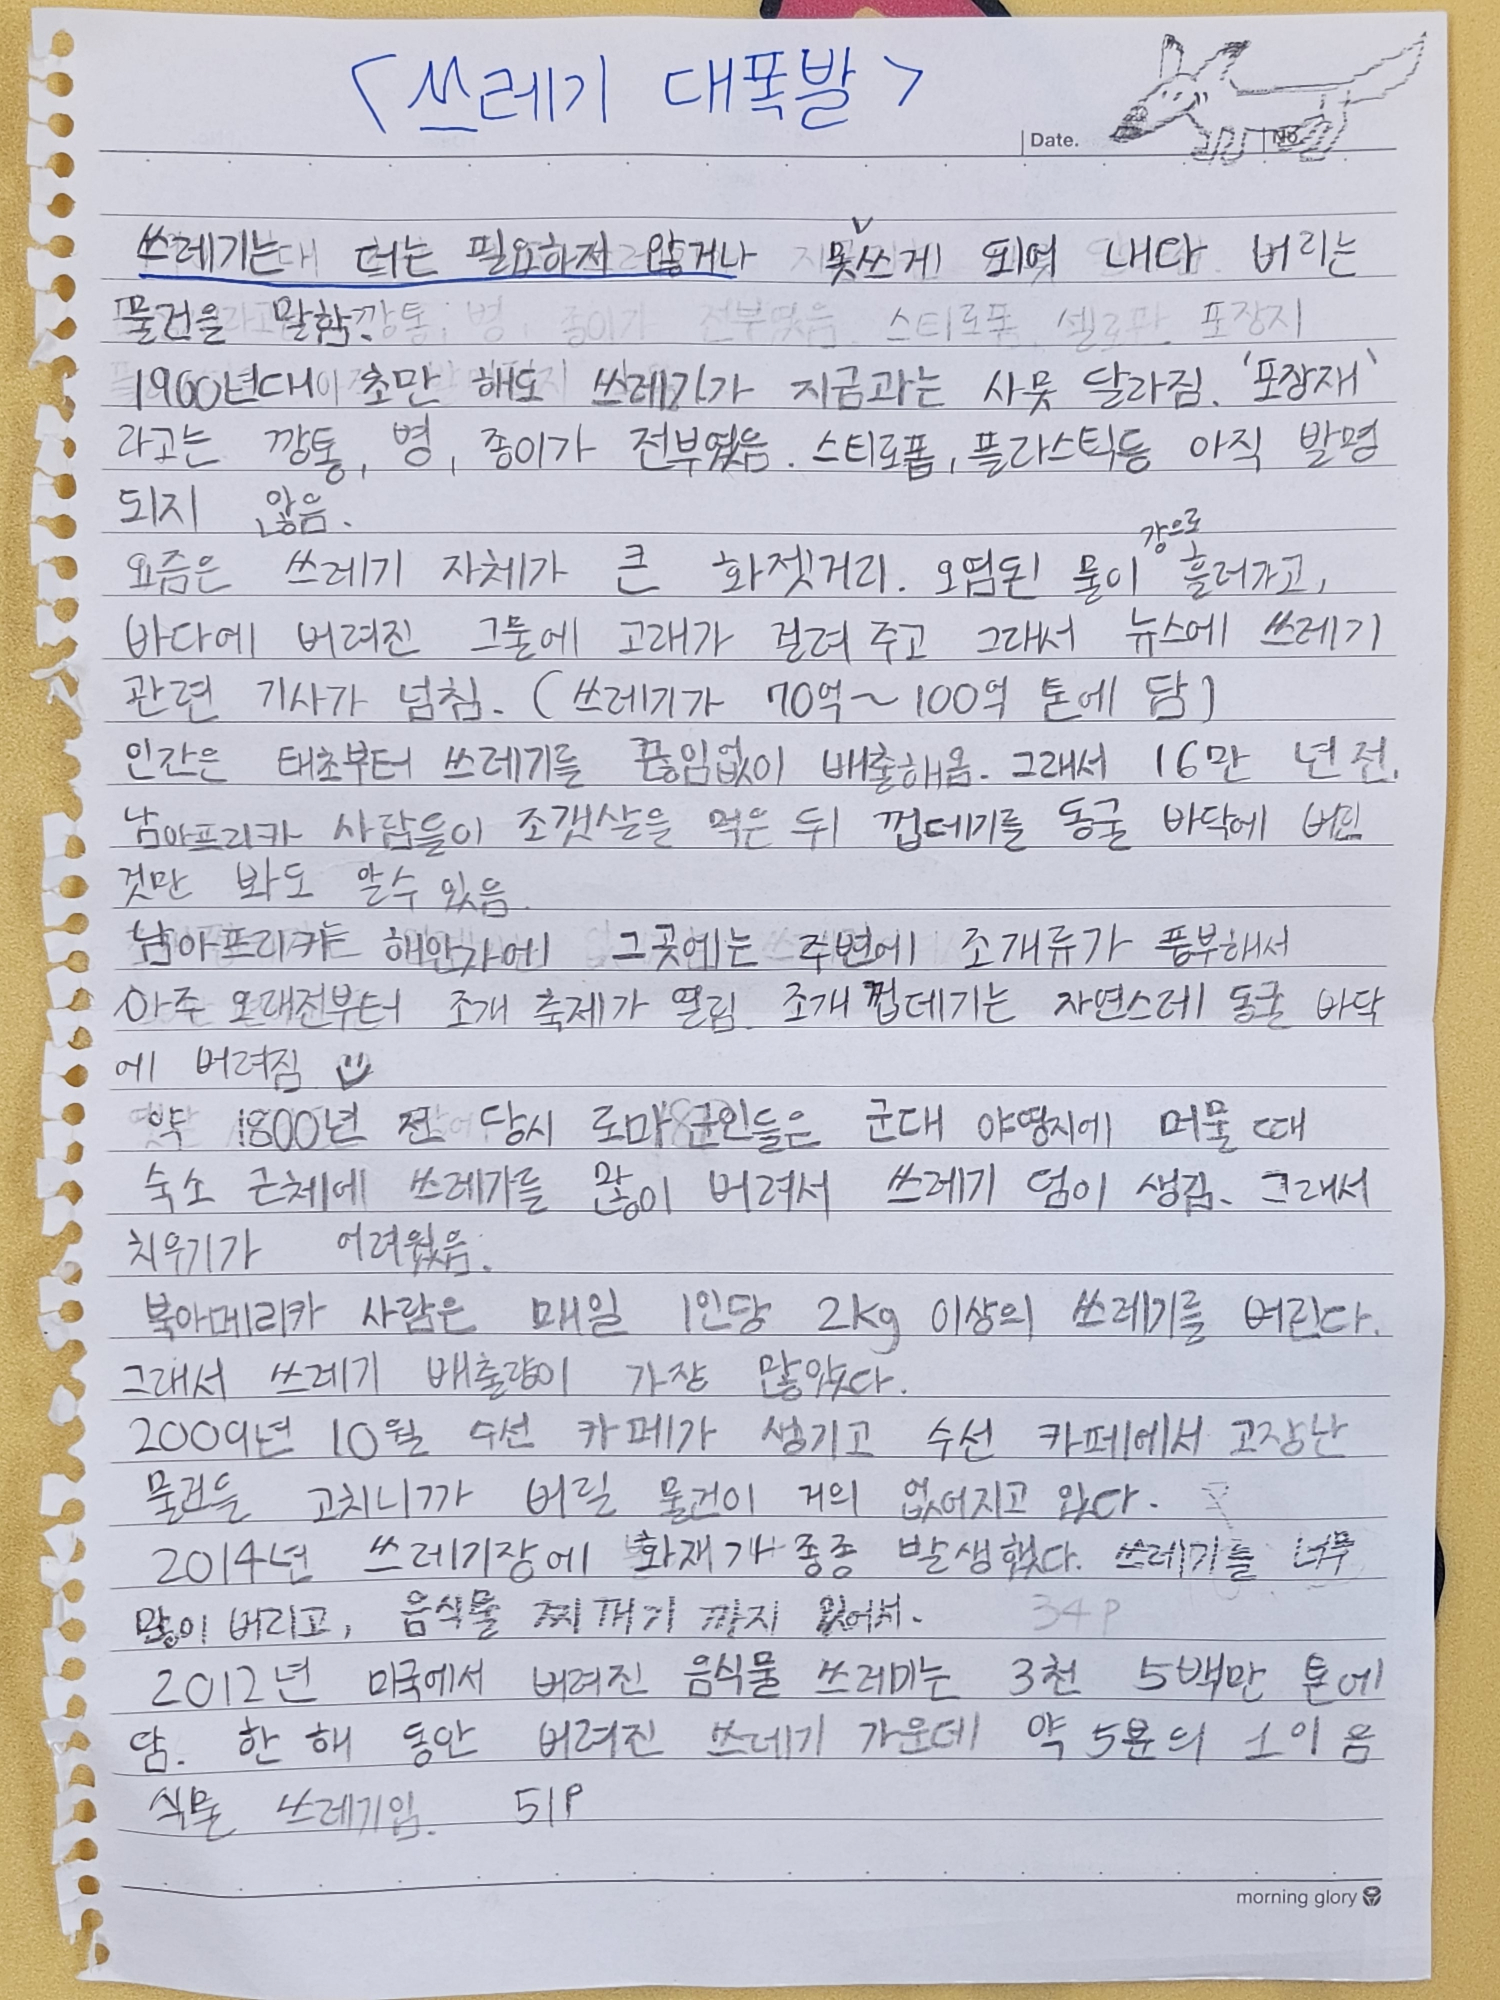 <쓰레기 대폭발>
Date.
No.
쓰레기는 더는 필요하지 않거나 못쓰게 되어 내다 버리는
물건을 말함.
1960년대 초만 해도 쓰레기가 지금과는 사뭇 달라짐. '포장재'
라고는 깡통, 병, 종이가 전부였음. 스티로폼, 플라스틱등 아직 발명
되지 않음.
요즘은 쓰레기 자체가 큰 화젯거리. 오염된 물이 강으로 흘러가고,
바다에 버려진 그물에 고래가 걸려 주고 그래서 뉴스에 쓰레기
관련 기사가 넘침. (쓰레기가 70억~100억 톤에 담)
인간은 태초부터 쓰레기를 끊임없이 배출해옴. 그래서 16만 년 전,
남아프리카 사람들이 조갯살을 먹은 뒤 껍데기를 동굴 바닥에 버린
것만 봐도 알수 있음.
남아프리카는 해안가에 그곳에는 주변에 조개류가 풍부해서
아주 오래전부터 조개 축제가 열림. 조개 껍데기는 자연스레 동굴 바닥
에 버려짐
약 1800년 전 당시 로마군인들은 군대 야영지에 머물 때
숙소 근체에 쓰레기를 많이 버려서 쓰레기 덤이 생김. 그래서
치우기가 어려웠음.
북아메리카 사람은 매일 1인당 2kg 이상의 쓰레기를 버린다.
그래서 쓰레기 배출량이 가장 많았다.
2009년 10월 수선 카페가 생기고 수선 카페에서 고장난
물건들 고치니까 버릴 물건이 거의 없어지고 있다.
2014년 쓰레기장에 화재가 종종 발생했다. 쓰레기를 너무
많이 버리고, 음식물 찌꺼기 까지 있어서. 34P
2012년 미국에서 버려진 음식물 쓰레미는 3천 5백만 톤에
담. 한 해 동안 버려진 쓰레기 가운데 약 5분의 1이 음
식물 쓰레기임. 51P
morning glory